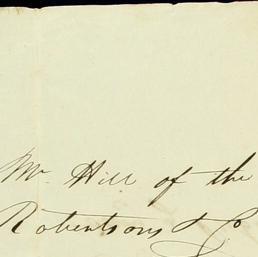 Mr. Hill of the
Robertsons & Co